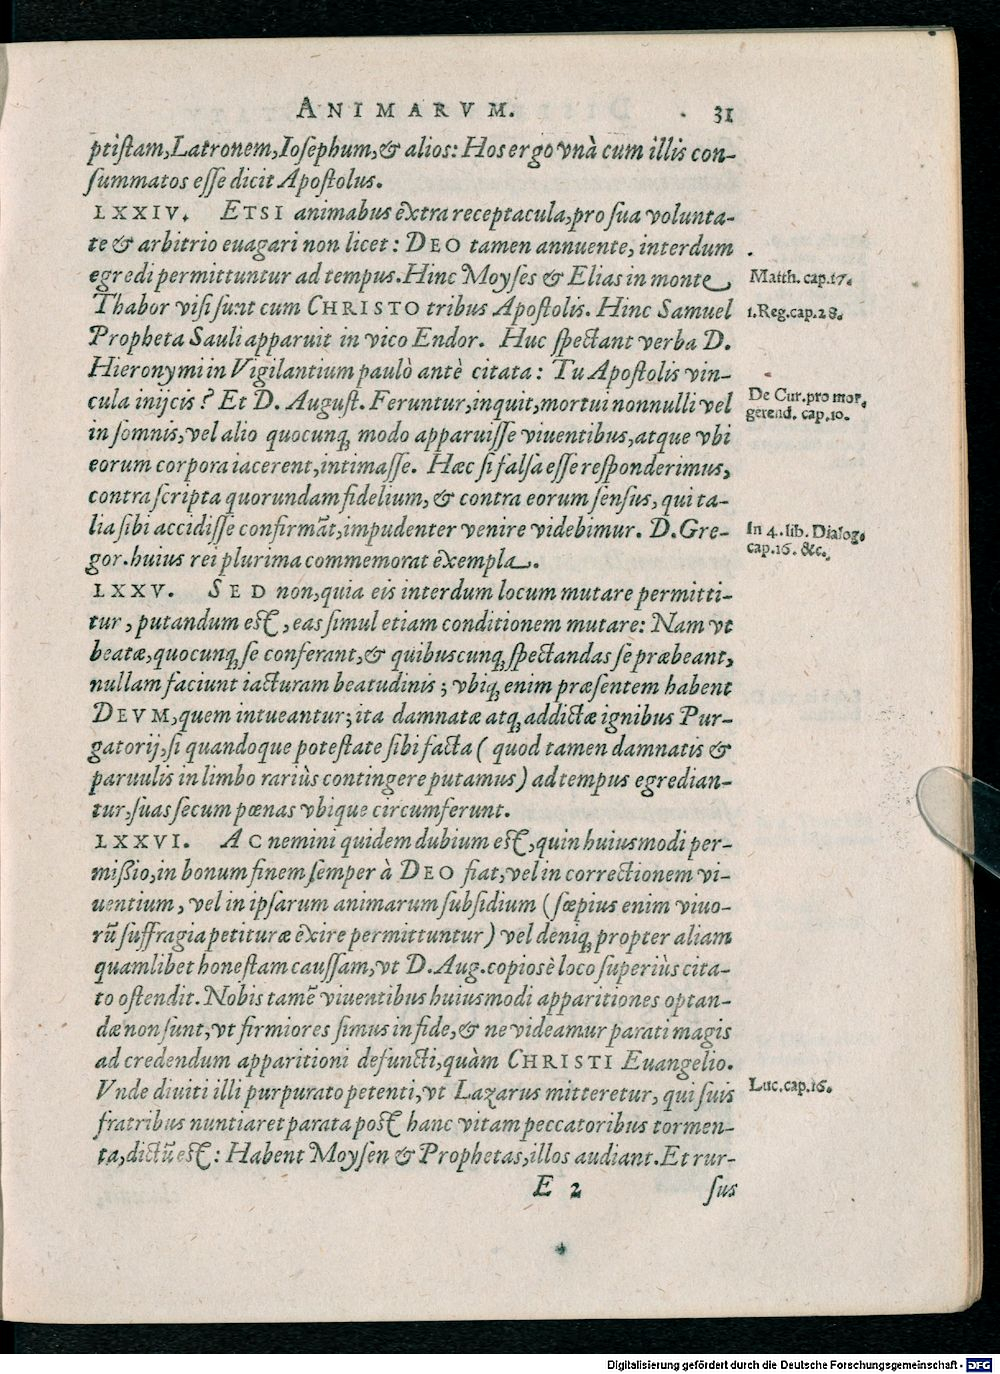 ANIMARVM. 31
ptistam, Latronem, Iosephum, & alios: Hos ergo vnà cum illis con-
summatos esse dicit Apostolus.
LXXIV. ETSI animabus extra receptacula, pro sua volunta-
te & arbitrio euagari non licet: DEO tamen annuente, interdum
egredi permittuntur ad tempus. Hinc Moyses & Elias in monte
Matth. cap. 17.
Thabor visi sunt cum CHRISTO tribus Apostolis. Hinc Samuel
1. Reg. cap. 28.
Propheta Sauli apparuit in vico Endor. Huc spectant verba D.
Hieronymi in Vigilantium paulò antè citata: Tu Apostolis vin-
cula inijcis? Et D. August. Feruntur, inquit, mortui nonnulli vel
De Cur. pro mor.
gerend. cap. 10.
in somnis, vel alio quocunq; modo apparuisse viuentibus, atque vbi
eorum corpora iacerent, intimasse. Hæc si falsa esse responderimus,
contra scripta quorundam fidelium, & contra eorum sensus, qui ta-
lia sibi accidisse confirmāt, impudenter venire videbimur. D. Gre-
In 4. lib. Dialog.
cap. 16. &c.
gor. huius rei plurima commemorat exempla.
LXXV. SED non, quia eis interdum locum mutare permitti-
tur, putandum est, eas simul etiam conditionem mutare: Nam vt
beatæ, quocunq; se conferant, & quibuscunq; spectandas se præbeant,
nullam faciunt iacturam beatudinis; vbiq; enim præsentem habent
DEVM, quem intueantur; ita damnatæ atq; addictæ ignibus Pur-
gatorij, si quandoque potestate sibi facta ( quod tamen damnatis &
paruulis in limbo rariùs contingere putamus) ad tempus egredian-
tur, suas secum pœnas vbique circumferunt.
LXXVI. AC nemini quidem dubium est, quin huiusmodi per-
mißio, in bonum finem semper à DEO fiat, vel in correctionem vi-
uentium, vel in ipsarum animarum subsidium (sæpius enim viuo-
rū suffragia petituræ exire permittuntur) vel deniq; propter aliam
quamlibet honestam caussam, vt D. Aug. copiosè loco superiùs cita-
to ostendit. Nobis tamē viuentibus huiusmodi apparitiones optan-
dæ non sunt, vt firmiores simus in fide, & ne videamur parati magis
ad credendum apparitioni defuncti, quàm CHRISTI Euangelio.
Vnde diuiti illi purpurato petenti, vt Lazarus mitteretur, qui suis
Luc. cap. 16.
fratribus nuntiaret parata post hanc vitam peccatoribus tormen-
ta, dictū est: Habent Moysen & Prophetas, illos audiant. Et rur-
E 2 sus
Digitalisierung gefördert durch die Deutsche Forschungsgemeinschaft - DFG